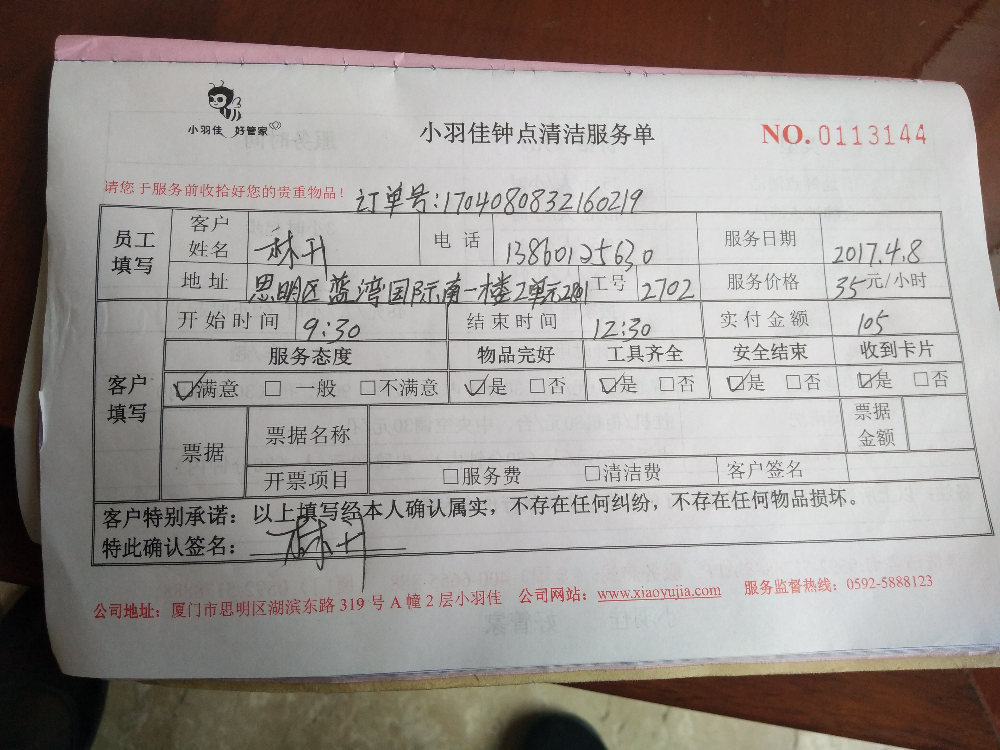 小羽佳 好管家
小羽佳钟点清洁服务单
NO.0113144
请您于服务前收拾好您的贵重物品！
订单号:1704080832160219
员工填写 客户姓名 林升 电话 13860125630 服务日期 2017.4.8
地址 思明区蓝湾国际南一楼2单元2801 工号 2702 服务价格 35元/小时
客户填写 开始时间 9:30 结束时间 12:30 实付金额 105
服务态度 物品完好 工具齐全 安全结束 收到卡片
☑满意 □一般 □不满意 ☑是 □否 ☑是 □否 ☑是 □否 ☑是 □否
票据 票据名称 票据金额
开票项目 □服务费 □清洁费 客户签名
客户特别承诺：以上填写经本人确认属实，不存在任何纠纷，不存在任何物品损坏。
特此确认签名：林升
公司地址：厦门市思明区湖滨东路 319 号 A 幢 2 层小羽佳 公司网站：www.xiaoyujia.com 服务监督热线：0592-5888123